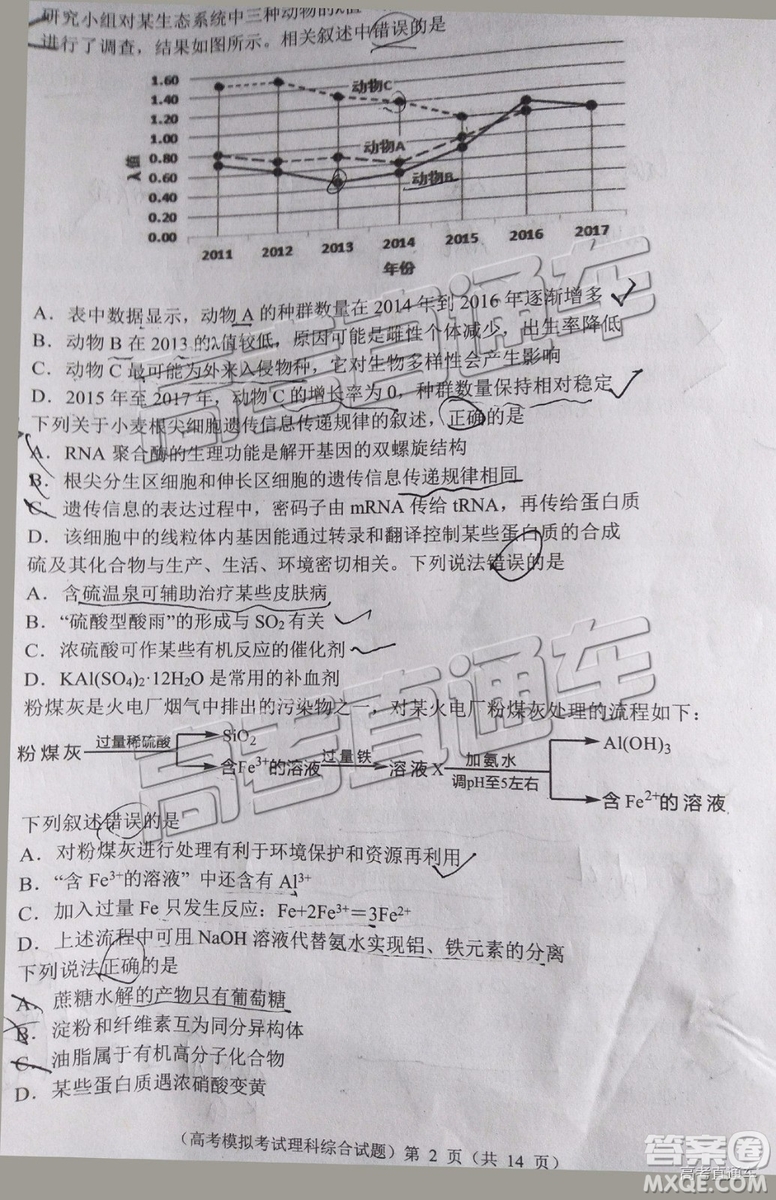 研究小组对某生态系统中三种动物的λ值
进行了调查，结果如图所示。相关叙述中错误的是
1.60
1.40
1.20
1.00
0.80
0.60
0.40
0.20
0.00
λ值
动物C
动物A
动物B
2011 2012 2013 2014 2015 2016 2017
年份
A．表中数据显示，动物 A 的种群数量在 2014 年到 2016 年逐渐增多
B．动物 B 在 2013 的λ值较低，原因可能是雌性个体减少，出生率降低
C．动物 C 最可能为外来入侵物种，它对生物多样性会产生影响
D．2015 年至 2017 年，动物 C 的增长率为 0，种群数量保持相对稳定
下列关于小麦根尖细胞遗传信息传递规律的叙述，正确的是
A．RNA 聚合酶的生理功能是解开基因的双螺旋结构
B．根尖分生区细胞和伸长区细胞的遗传信息传递规律相同
C．遗传信息的表达过程中，密码子由 mRNA 传给 tRNA，再传给蛋白质
D．该细胞中的线粒体内基因能通过转录和翻译控制某些蛋白质的合成
硫及其化合物与生产、生活、环境密切相关。下列说法错误的是
A．含硫温泉可辅助治疗某些皮肤病
B．“硫酸型酸雨”的形成与 SO₂ 有关
C．浓硫酸可作某些有机反应的催化剂
D．KAl(SO₄)₂·12H₂O 是常用的补血剂
粉煤灰是火电厂烟气中排出的污染物之一，对某火电厂粉煤灰处理的流程如下：
粉煤灰 过量稀硫酸 SiO₂ 含Fe³⁺的溶液 过量铁 溶液X 加氨水 调pH至5左右 Al(OH)₃ 含Fe²⁺的溶液
下列叙述错误的是
A．对粉煤灰进行处理有利于环境保护和资源再利用
B．“含 Fe³⁺的溶液” 中还含有 Al³⁺
C．加入过量 Fe 只发生反应：Fe+2Fe³⁺＝3Fe²⁺
D．上述流程中可用 NaOH 溶液代替氨水实现铝、铁元素的分离
下列说法正确的是
A．蔗糖水解的产物只有葡萄糖
B．淀粉和纤维素互为同分异构体
C．油脂属于有机高分子化合物
D．某些蛋白质遇浓硝酸变黄
（高考模拟考试理科综合试题）第 2 页（共 14 页）
高考直通车
高考直通车
答案圈
高考直通车
MXQE.COM